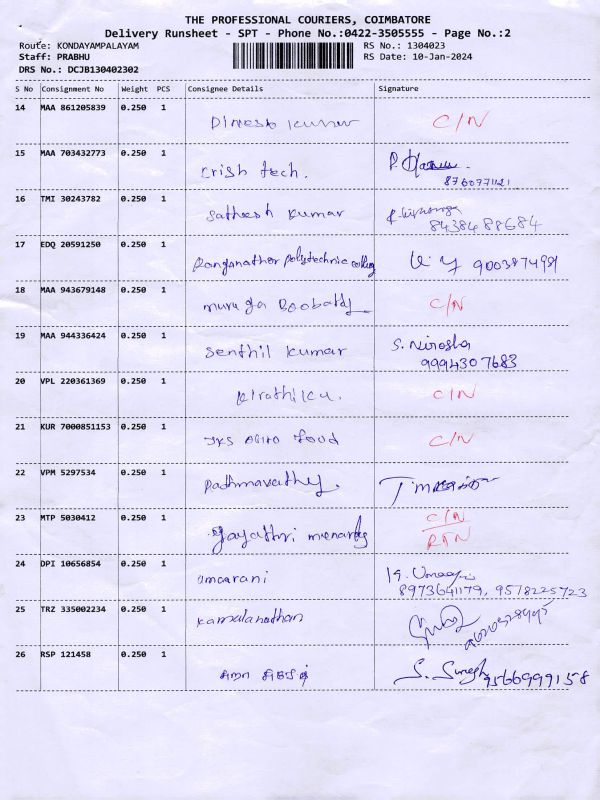 THE PROFESSIONAL COURIERS, COIMBATORE
Delivery Runsheet - SPT - Phone No.:0422-3505555 - Page No.:2
Route: KONDAYAMPALAYAM RS No.: 1304023
Staff: PRABHU RS Date: 10-Jan-2024
DRS No.: DCJB130402302
S No Consignment No Weight PCS Consignee Details Signature
14 MAA 861205839 0.250 1 Dinesh kumar C/N
15 MAA 703432773 0.250 1 Crish tech.
16 TMI 30243782 0.250 1 Sathesh kumar
8438488684
17 EDQ 20591250 0.250 1 Ranganathar polytechnic
18 MAA 943679148 0.250 1 muru ga C/N
19 MAA 944336424 0.250 1 Senthil kumar S. Nirosha
9994307683
20 VPL 220361369 0.250 1 C/N
21 KUR 7000851153 0.250 1 food C/N
22 VPM 5297534 0.250 1 Padhmavathy.
23 MTP 5030412 0.250 1 gayathri C/N
RTN
24 DPI 10656854 0.250 1 umarani
8973641179, 9578225723
25 TRZ 335002234 0.250 1 kamalanathan
26 RSP 121458 0.250 1 S. Suresh 9566999158